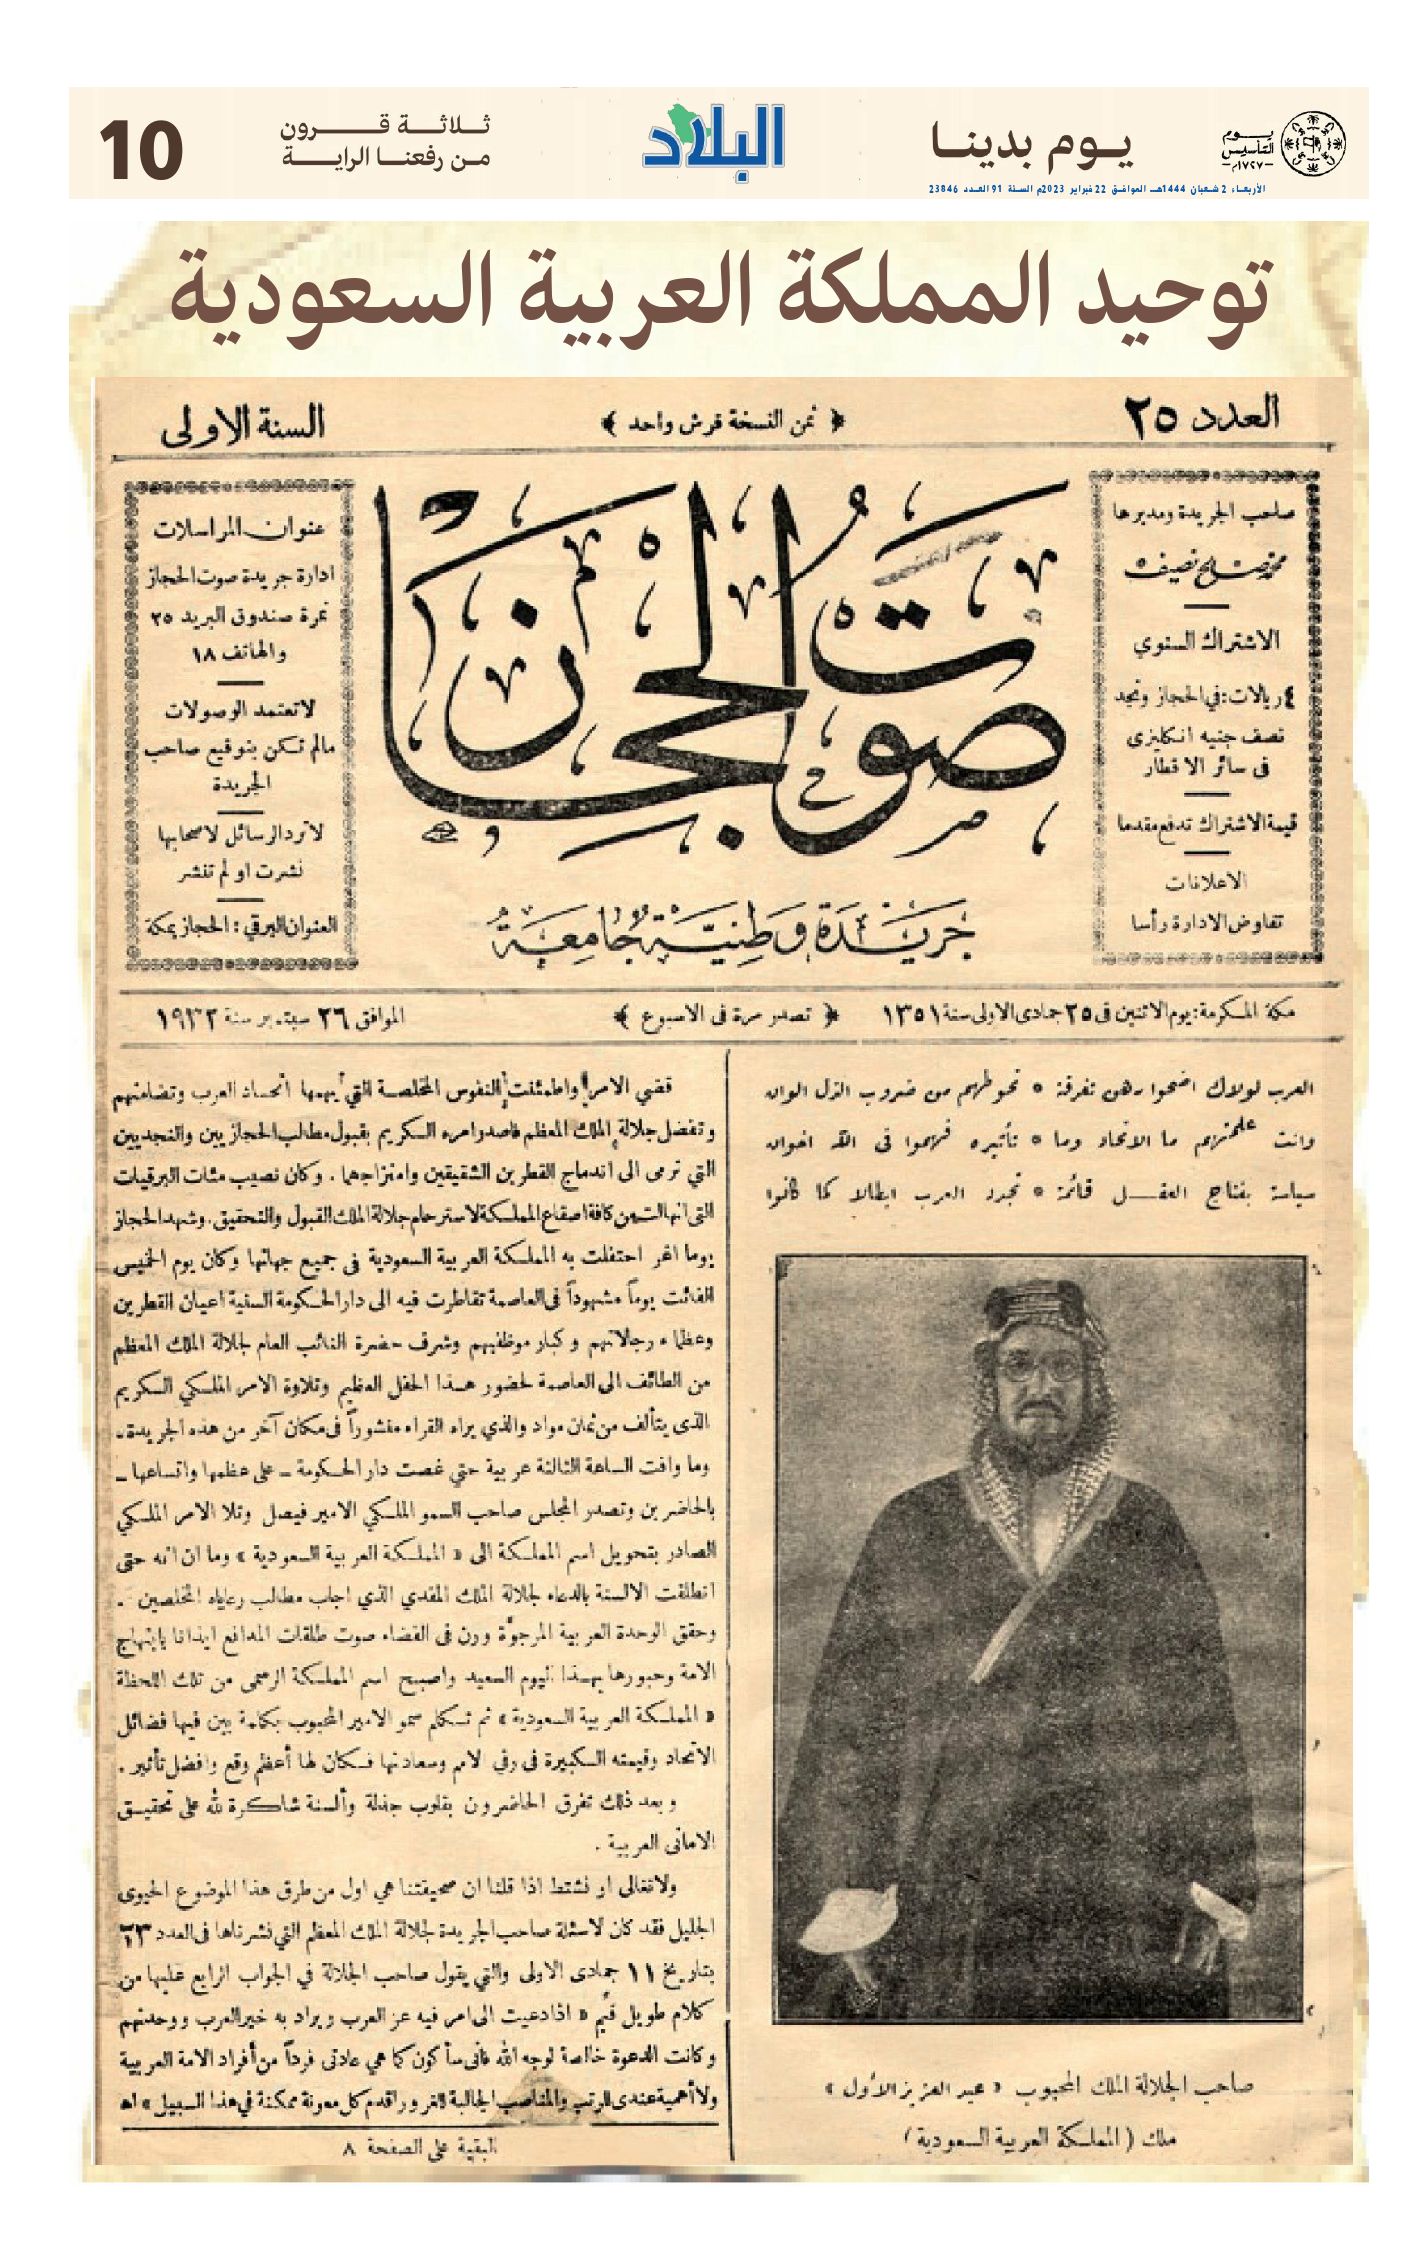 يوم التأسيس
١٧٢٧م
يوم بدينا
الأربعاء 2 شعبان 1444هـ الموافق 22 فبراير 2023م السنة 91 العدد 23846
البلاد
ثلاثة قرون
من رفعنا الراية
10
توحيد المملكة العربية السعودية
العدد ٢٥
﴿ ثمن النسخة قرش واحد ﴾
السنة الاولى
صاحب الجريدة ومديرها
محمد صالح نصيف
الاشتراك السنوي
٤ ريالات: في الحجاز ونجد
نصف جنيه انكليزى
فى سائر الاقطار
قيمة الاشتراك تدفع مقدما
الاعلانات
تفاوض الادارة رأسا
صوت الحجاز
جريدة وطنية جامعة
عنوان المراسلات
ادارة جريدة صوت الحجاز
نمرة صندوق البريد ٢٥
والهاتف ١٨
لا تعتمد الوصولات
مالم تكن بتوقيع صاحب
الجريدة
لا ترد الرسائل لاصحابها
نشرت او لم تنشر
العنوان البرقي: الحجاز بمكة
مكة المكرمة: يوم الاثنين فى ٢٥ جمادى الاولى سنة ١٣٥١
﴿ تصدر مرة فى الاسبوع ﴾
الموافق ٢٦ سبتمبر سنة ١٩٣٢
العرب لولاك اضحوا رهن تفرقة * تحوطهم من ضروب الذل الوان
وانت علمتهم ما الاتحاد وما * تأثيره فهموا فى الله اخوان
سياسة بفتاج العقل قائمة * تجدد العرب ابطالا كما كانوا
صاحب الجلالة الملك المحبوب « عبد العزيز الأول »
ملك ( المملكة العربية السعودية )
قضي الامر واطمئنت النفوس المخلصة التي يهمها اتحاد العرب وتضامنهم
وتفضل جلالة الملك المعظم فاصدر امره الكريم بقبول مطالب الحجازيين والنجديين
التي ترمى الى اندماج القطرين الشقيقين وامتزاجهما . وكان نصيب مئات البرقيات
التى انهالت من كافة اصقاع المملكة لاسترحام جلالة الملك القبول والتحقيق . وشهد الحجاز
يوما اغر احتفلت به المملكة العربية السعودية فى جميع جهاتها وكان يوم الخميس
الفائت يوماً مشهوداً فى العاصمة تقاطرت فيه الى دار الحكومة السنية اعيان القطرين
وعظماء رجالاتهم وكبار موظفيهم وشرف حضرة النائب العام لجلالة الملك المعظم
من الطائف الى العاصمة لحضور هذا الحفل العظيم وتلاوة الامر الملكي الكريم
الذى يتألف من ثمان مواد والذي يراه القراء منشوراً فى مكان آخر من هذه الجريدة ـ
وما وافت الساعة الثالثة عربية حتي غصت دار الحكومة ـ على عظمها واتساعها ـ
بالحاضرين وتصدر المجلس صاحب السمو الملكي الامير فيصل وتلا الامر الملكي
الصادر بتحويل اسم المملكة الى « المملكة العربية السعودية » وما ان اتمه حتى
انطلقت الالسنة بالدعاء لجلالة الملك المفدي الذي اجاب مطالب رعاياه المخلصين .
وحقق الوحدة العربية المرجوّة ورن فى الفضاء صوت طلقات المدافع ايذانا بابتهاج
الامة وحبورها بهذا اليوم السعيد واصبح اسم المملكة الرسمى من تلك اللحظة
« المملكة العربية السعودية » ثم تكلم سمو الامير المحبوب بكلمة بين فيها فضائل
الاتحاد وقيمته الكبيرة فى رقي الامم وسعادتها فكان لها أعظم وقع وافضل تأثير .
وبعد ذلك تفرق الحاضرون بقلوب جذلة وألسنة شاكرة لله على تحقيق
الامانى العربية .
ولا نغالى او نشتط اذا قلنا ان صحيفتنا هي اول من طرق هذا الموضوع الحيوى
الجليل فقد كان لاسئلة صاحب الجريدة لجلالة الملك المعظم التي نشرناها فى العدد ٢٣
بتاريخ ١١ جمادى الاولى والتي يقول صاحب الجلالة في الجواب الرابع عليها من
كلام طويل قيّم « اذا دعيت الى امر فيه عز العرب ويراد به خير العرب ووحدتهم
وكانت الدعوة خالصة لوجه الله فانى سأكون كما هي عادتى فرداً من أفراد الامة العربية
ولا أهمية عندى للرتب والمناصب الجالبة للغرور اقدم كل معونة ممكنة في هذا السبيل » اهـ
البقية على الصفحة ٨